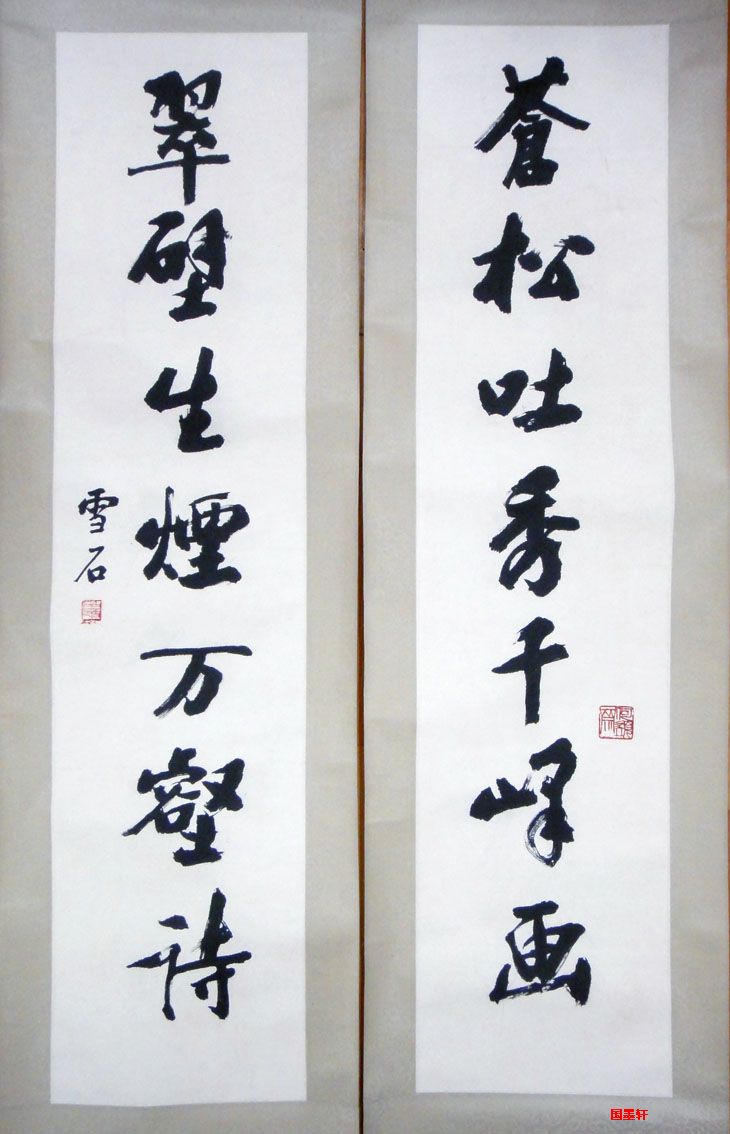 蒼松吐秀千峰画
翠壁生煙万壑詩
雪石
国墨轩